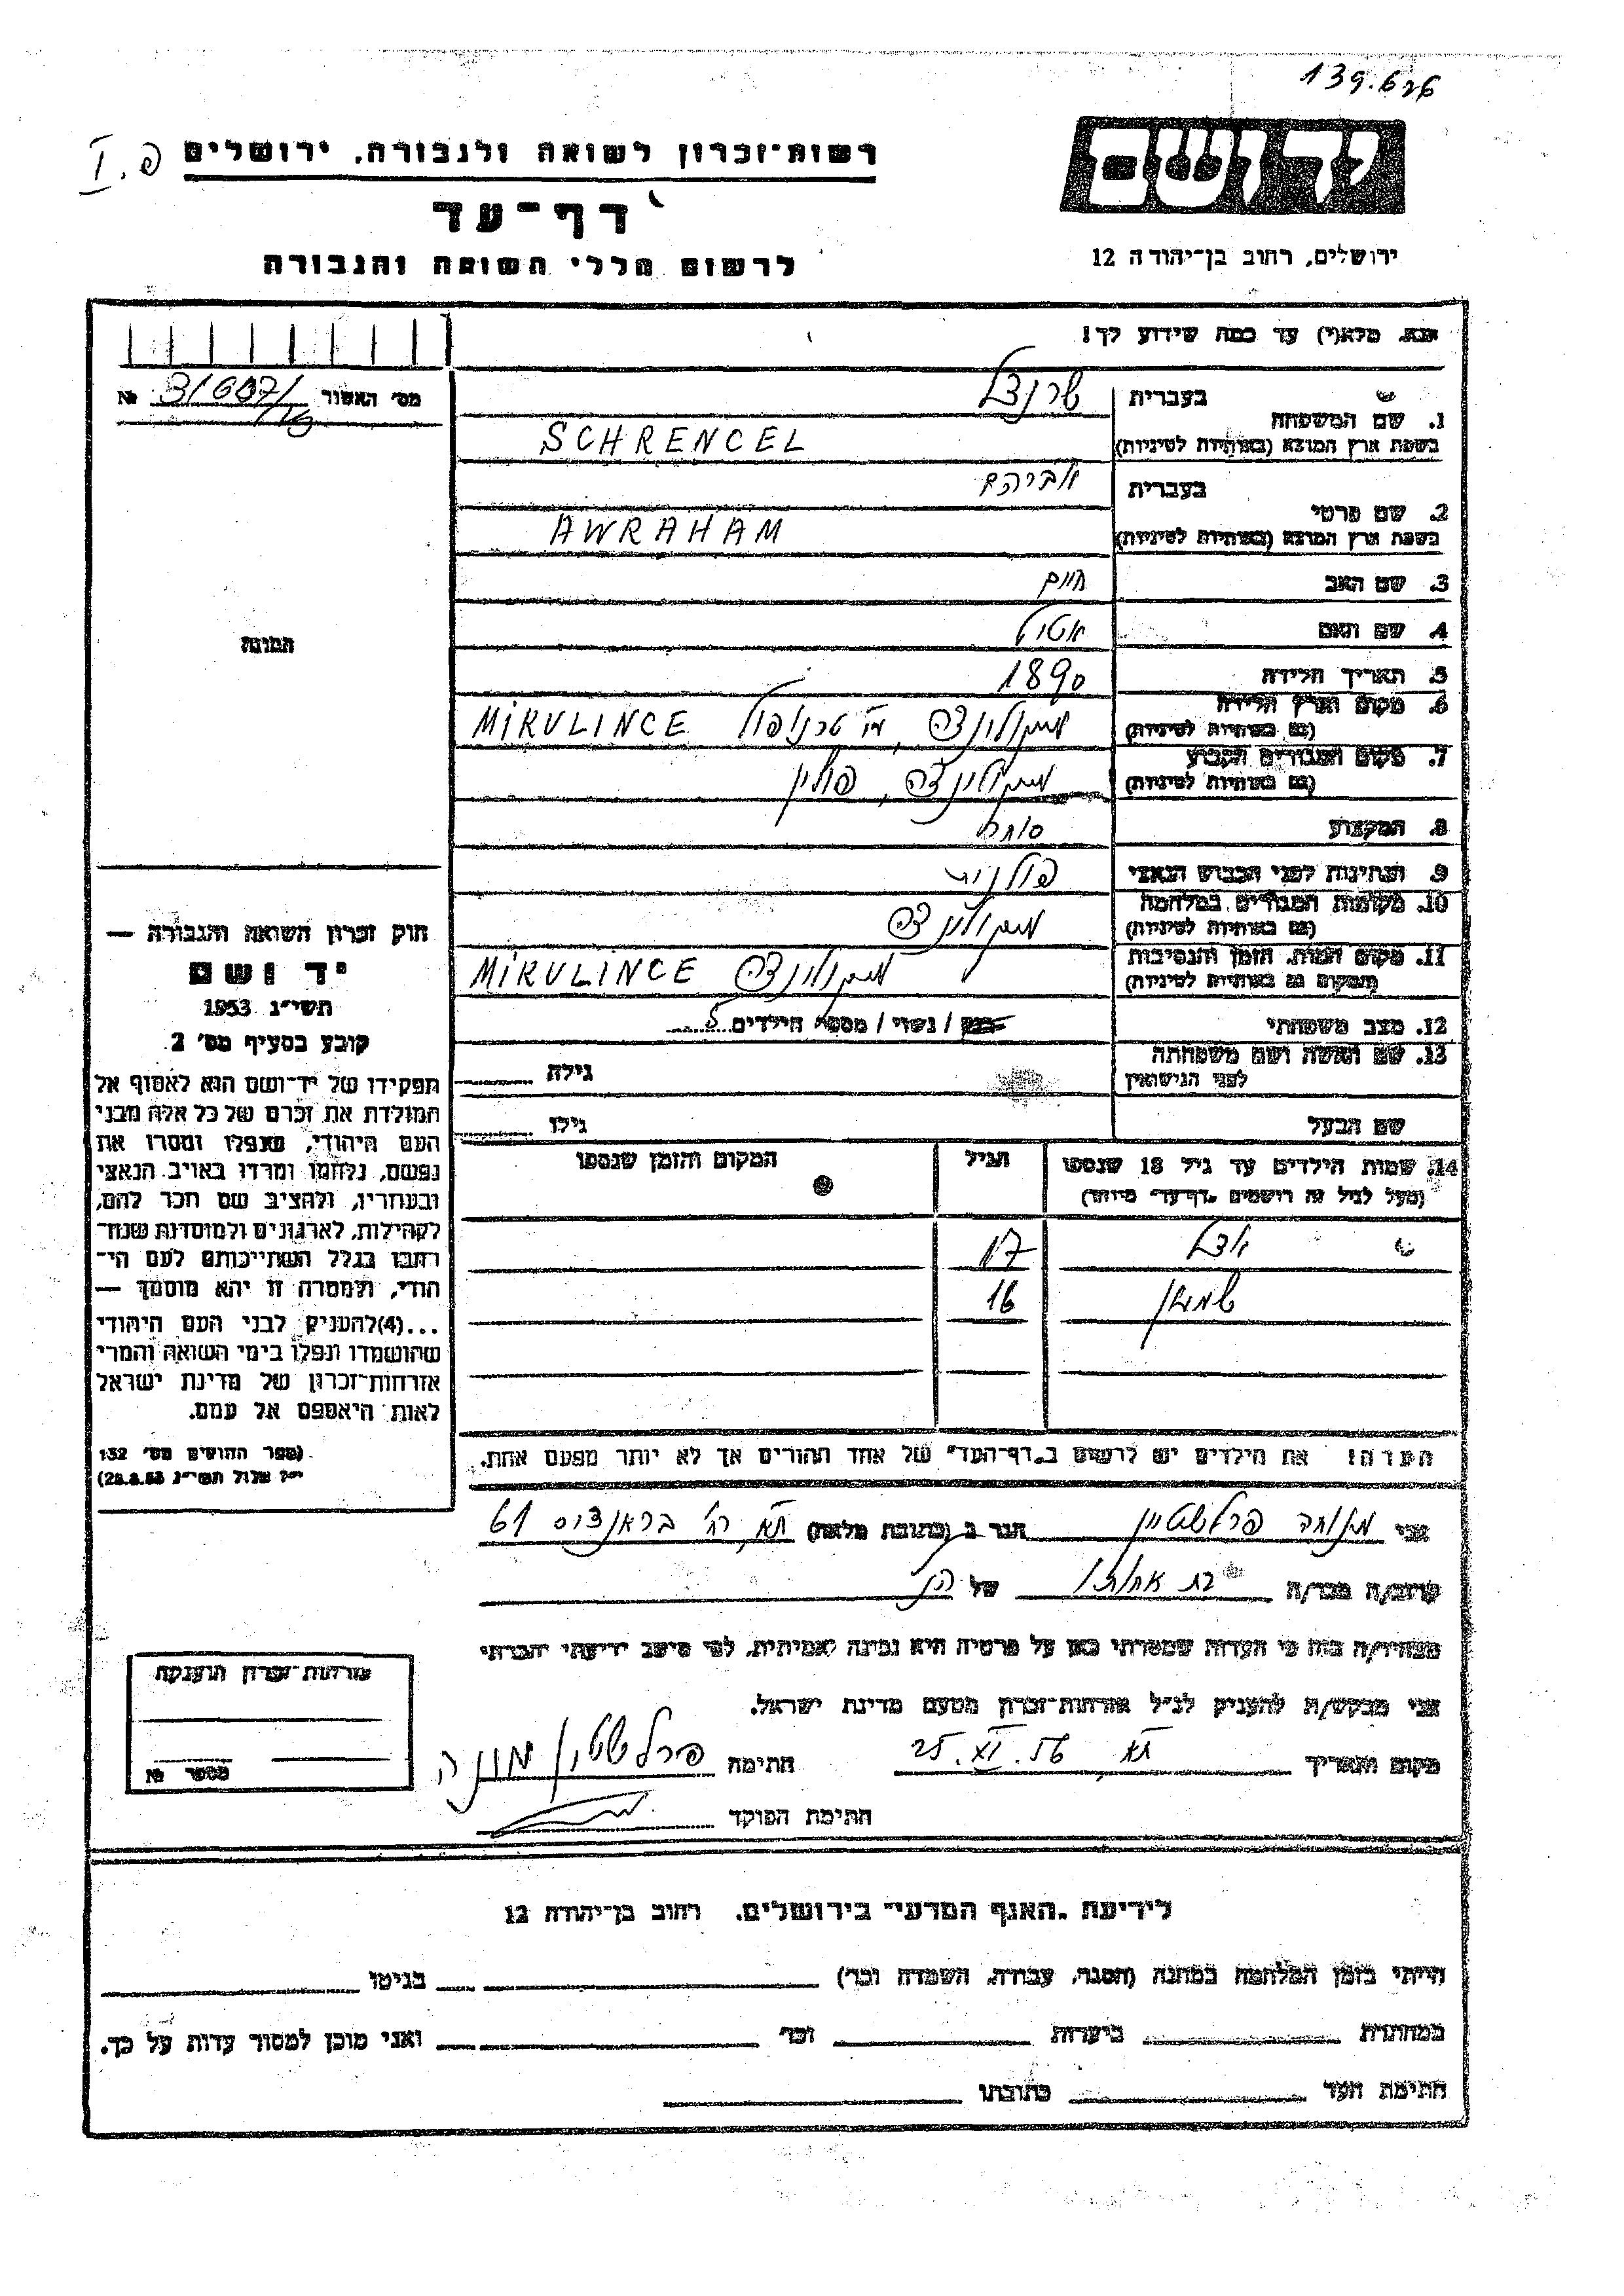 139.626
פ. I
רשות־זכרון לשואה ולגבורה, ירושלים
יד ושם
דף־עד
לרשום חללי השואה והגבורה
ירושלים, רחוב בן־יהודה 12
אנא, מלא(י) עד כמה שידוע לך!
מס' האשור №
1. שם המשפחה בעברית שרנצל
בשפת ארץ המוצא (באותיות לטיניות) SCHRENCEL
2. שם פרטי בעברית אברהם
בשפת ארץ המוצא (באותיות לטיניות) AWRAHAM
3. שם האב חיים
4. שם האם
5. תאריך הלידה 1890
6. מקום וארץ הלידה מיקולינצה, מ' טרנופול MIKULINCE
(גם באותיות לטיניות)
7. מקום המגורים הקבוע מיקולינצה, פולין
(גם באותיות לטיניות)
8. המקצוע סוחר
9. הנתינות לפני הכבוש הנאצי פולנית
10. מקומות המגורים במלחמה מיקולינצה
(גם באותיות לטיניות)
11. מקום המות, הזמן והנסיבות מיקולינצה MIKULINCE
(המקום גם באותיות לטיניות)
12. מצב משפחתי רווק / נשוי / מספר הילדים 5
13. שם האשה ושם משפחתה גילה
לפני הנישואין
שם הבעל גילו
14. שמות הילדים עד גיל 18 שנספו הגיל המקום והזמן שנספו
(מעל לגיל זה רושמים "דף־עד" מיוחד)
17
שמעון 16
הערה! את הילדים יש לרשום ב"דף־העד" של אחד ההורים אך לא יותר מפעם אחת.
התמונה
חוק זכרון השואה והגבורה —
יד ושם
תשי״ג 1953
קובע בסעיף מס' 2
תפקידו של יד־ושם הוא לאסוף אל
המולדת את זכרם של כל אלה מבני
העם היהודי, שנפלו ומסרו את
נפשם, נלחמו ומרדו באויב הנאצי
ובעוזריו, ולהציב שם וזכר להם,
לקהילות, לארגונים ולמוסדות שנח־
רבו בגלל השתייכותם לעם הי־
הודי, ולמטרה זו יהא מוסמך —
...(4) להעניק לבני העם היהודי
שהושמדו ונפלו בימי השואה והמרי
אזרחות־זכרון של מדינת ישראל
לאות היאספם אל עמם.
(ספר החוקים מס' 132
י״ז אלול תשי״ג 28.8.53)
אני מנוחה פרלשטיין הגר ב (כתובת מלאה) ת״א, רח' בראנדיס 61
קרוב/ה מכר/ה בת אחותו של הנ״ל
מצהיר/ה בזה כי העדות שמסרתי כאן על פרטיה היא נכונה ואמיתית, לפי מיטב ידיעתי והכרתי
אני מבקש/ת להעניק לנ״ל אזרחות־זכרון מטעם מדינת ישראל.
מקום ותאריך ת״א, 25.XI.56 חתימה
חתימת הפוקד
אזרחות־זכרון הוענקה
מספר №
לידיעת "האגף המדעי" בירושלים, רחוב בן־יהודה 12
הייתי בזמן המלחמה במחנה (הסגר, עבודה, השמדה וכו') בגיטו
במחתרת ביערות וכו' ואני מוכן למסור עדות על כך.
חתימת העד כתובתו